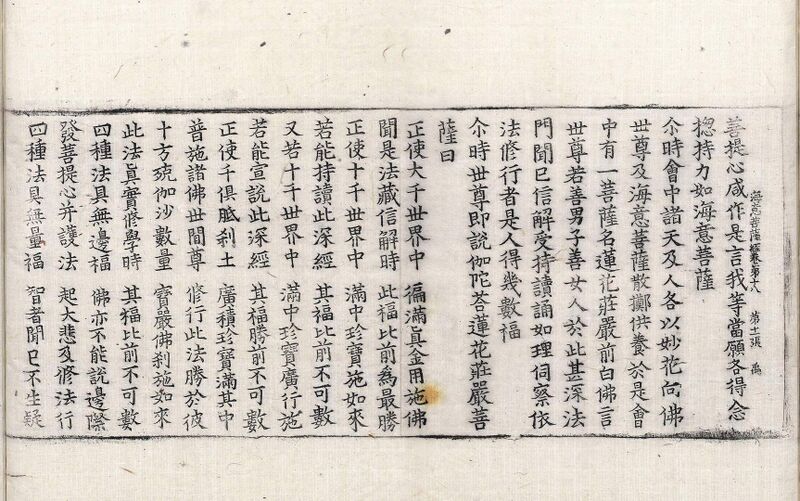 菩提心咸作是言我等當願各得念
海意菩薩經卷第十八 第十一張 禹
揔持力如海意菩薩
尒時會中諸天及人各以妙花向佛
世尊及海意菩薩散擲供養於是會
中有一菩薩名蓮花莊嚴前白佛言
世尊若善男子善女人於此甚深法
門聞已信解受持讀誦如理伺察依
法修行者是人得幾數福
尒時世尊即說伽陀荅蓮花莊嚴菩
薩曰
正使大千世界中 徧滿眞金用施佛
聞是法藏信解時 此福比前爲最勝
正使十千世界中 滿中珍寶施如來
若能持讀此深經 其福比前不可數
又若十千世界中 滿中珍寶廣行施
若能宣說此深經 其福勝前不可數
正使千俱胝刹土 廣積珍寶滿其中
普施諸佛世間尊 修行此法勝於彼
十方殑伽沙數量 寶嚴佛刹施如來
此法眞實修學時 其福比前不可數
四種法具無邊福 佛亦不能說邊際
發菩提心并護法 起大悲及修法行
四種法具無量福 智者聞已不生疑